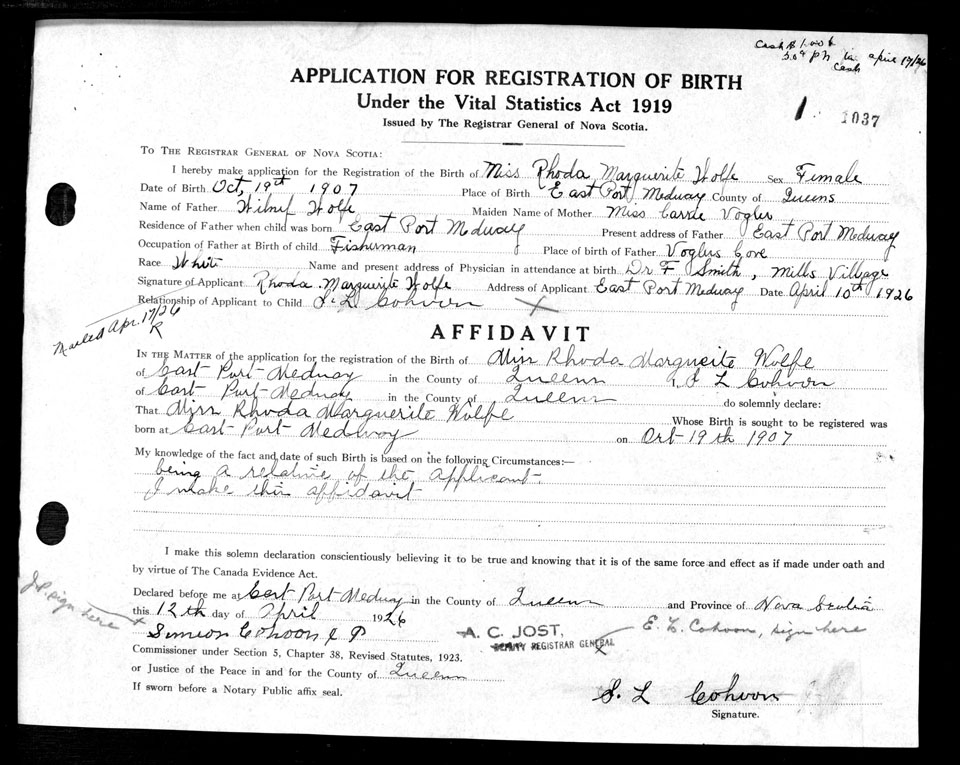 Cash
5.09 pm is april 17/26
cash
APPLICATION FOR REGISTRATION OF BIRTH
Under the Vital Statistics Act 1919
Issued by The Registrar General of Nova Scotia.
1 1037
TO THE REGISTRAR GENERAL OF NOVA SCOTIA:
I hereby make application for the Registration of the Birth of Miss Rhoda Marguerite Wolfe Sex Female
Date of Birth Oct, 19th 1907 Place of Birth East Port Medway County of Queens
Name of Father Wolfe Maiden Name of Mother Miss Carrie Vogler
Residence of Father when child was born East Port Medway Present address of Father East Port Medway
Occupation of Father at Birth of child Fisherman Place of birth of Father Voglers Cove
Race White Name and present address of Physician in attendance at birth Dr F Smith, Mills Village
Signature of Applicant Rhoda Marguerite Wolfe Address of Applicant East Port Medway Date April 10th 1926
Relationship of Applicant to Child L Cohoon X
Mailed Apr. 17/26
R
AFFIDAVIT
IN THE MATTER of the application for the registration of the Birth of Miss Rhoda Marguerite Wolfe
of East Port Medway in the County of Queens I, L Cohoon
of East Port Medway in the County of Queens do solemnly declare:
That Miss Rhoda Marguerite Wolfe Whose Birth is sought to be registered was
born at East Port Medway on Oct 19th 1907
My knowledge of the fact and date of such Birth is based on the following Circumstances:—
being a relative of the applicant
I make this affidavit
I make this solemn declaration conscientiously believing it to be true and knowing that it is of the same force and effect as if made under oath and
by virtue of The Canada Evidence Act.
Declared before me at East Port Medway in the County of Queens and Province of Nova Scotia
J.P. sign here x
this 12th day of April 1926
Simeon Cohoon J P
A. C. JOST,
DEPUTY REGISTRAR GENERAL
E. L. Cohoon, sign here
Commissioner under Section 5, Chapter 38, Revised Statutes, 1923.
or Justice of the Peace in and for the County of Queens
If sworn before a Notary Public affix seal.
S. L Cohoon
Signature.